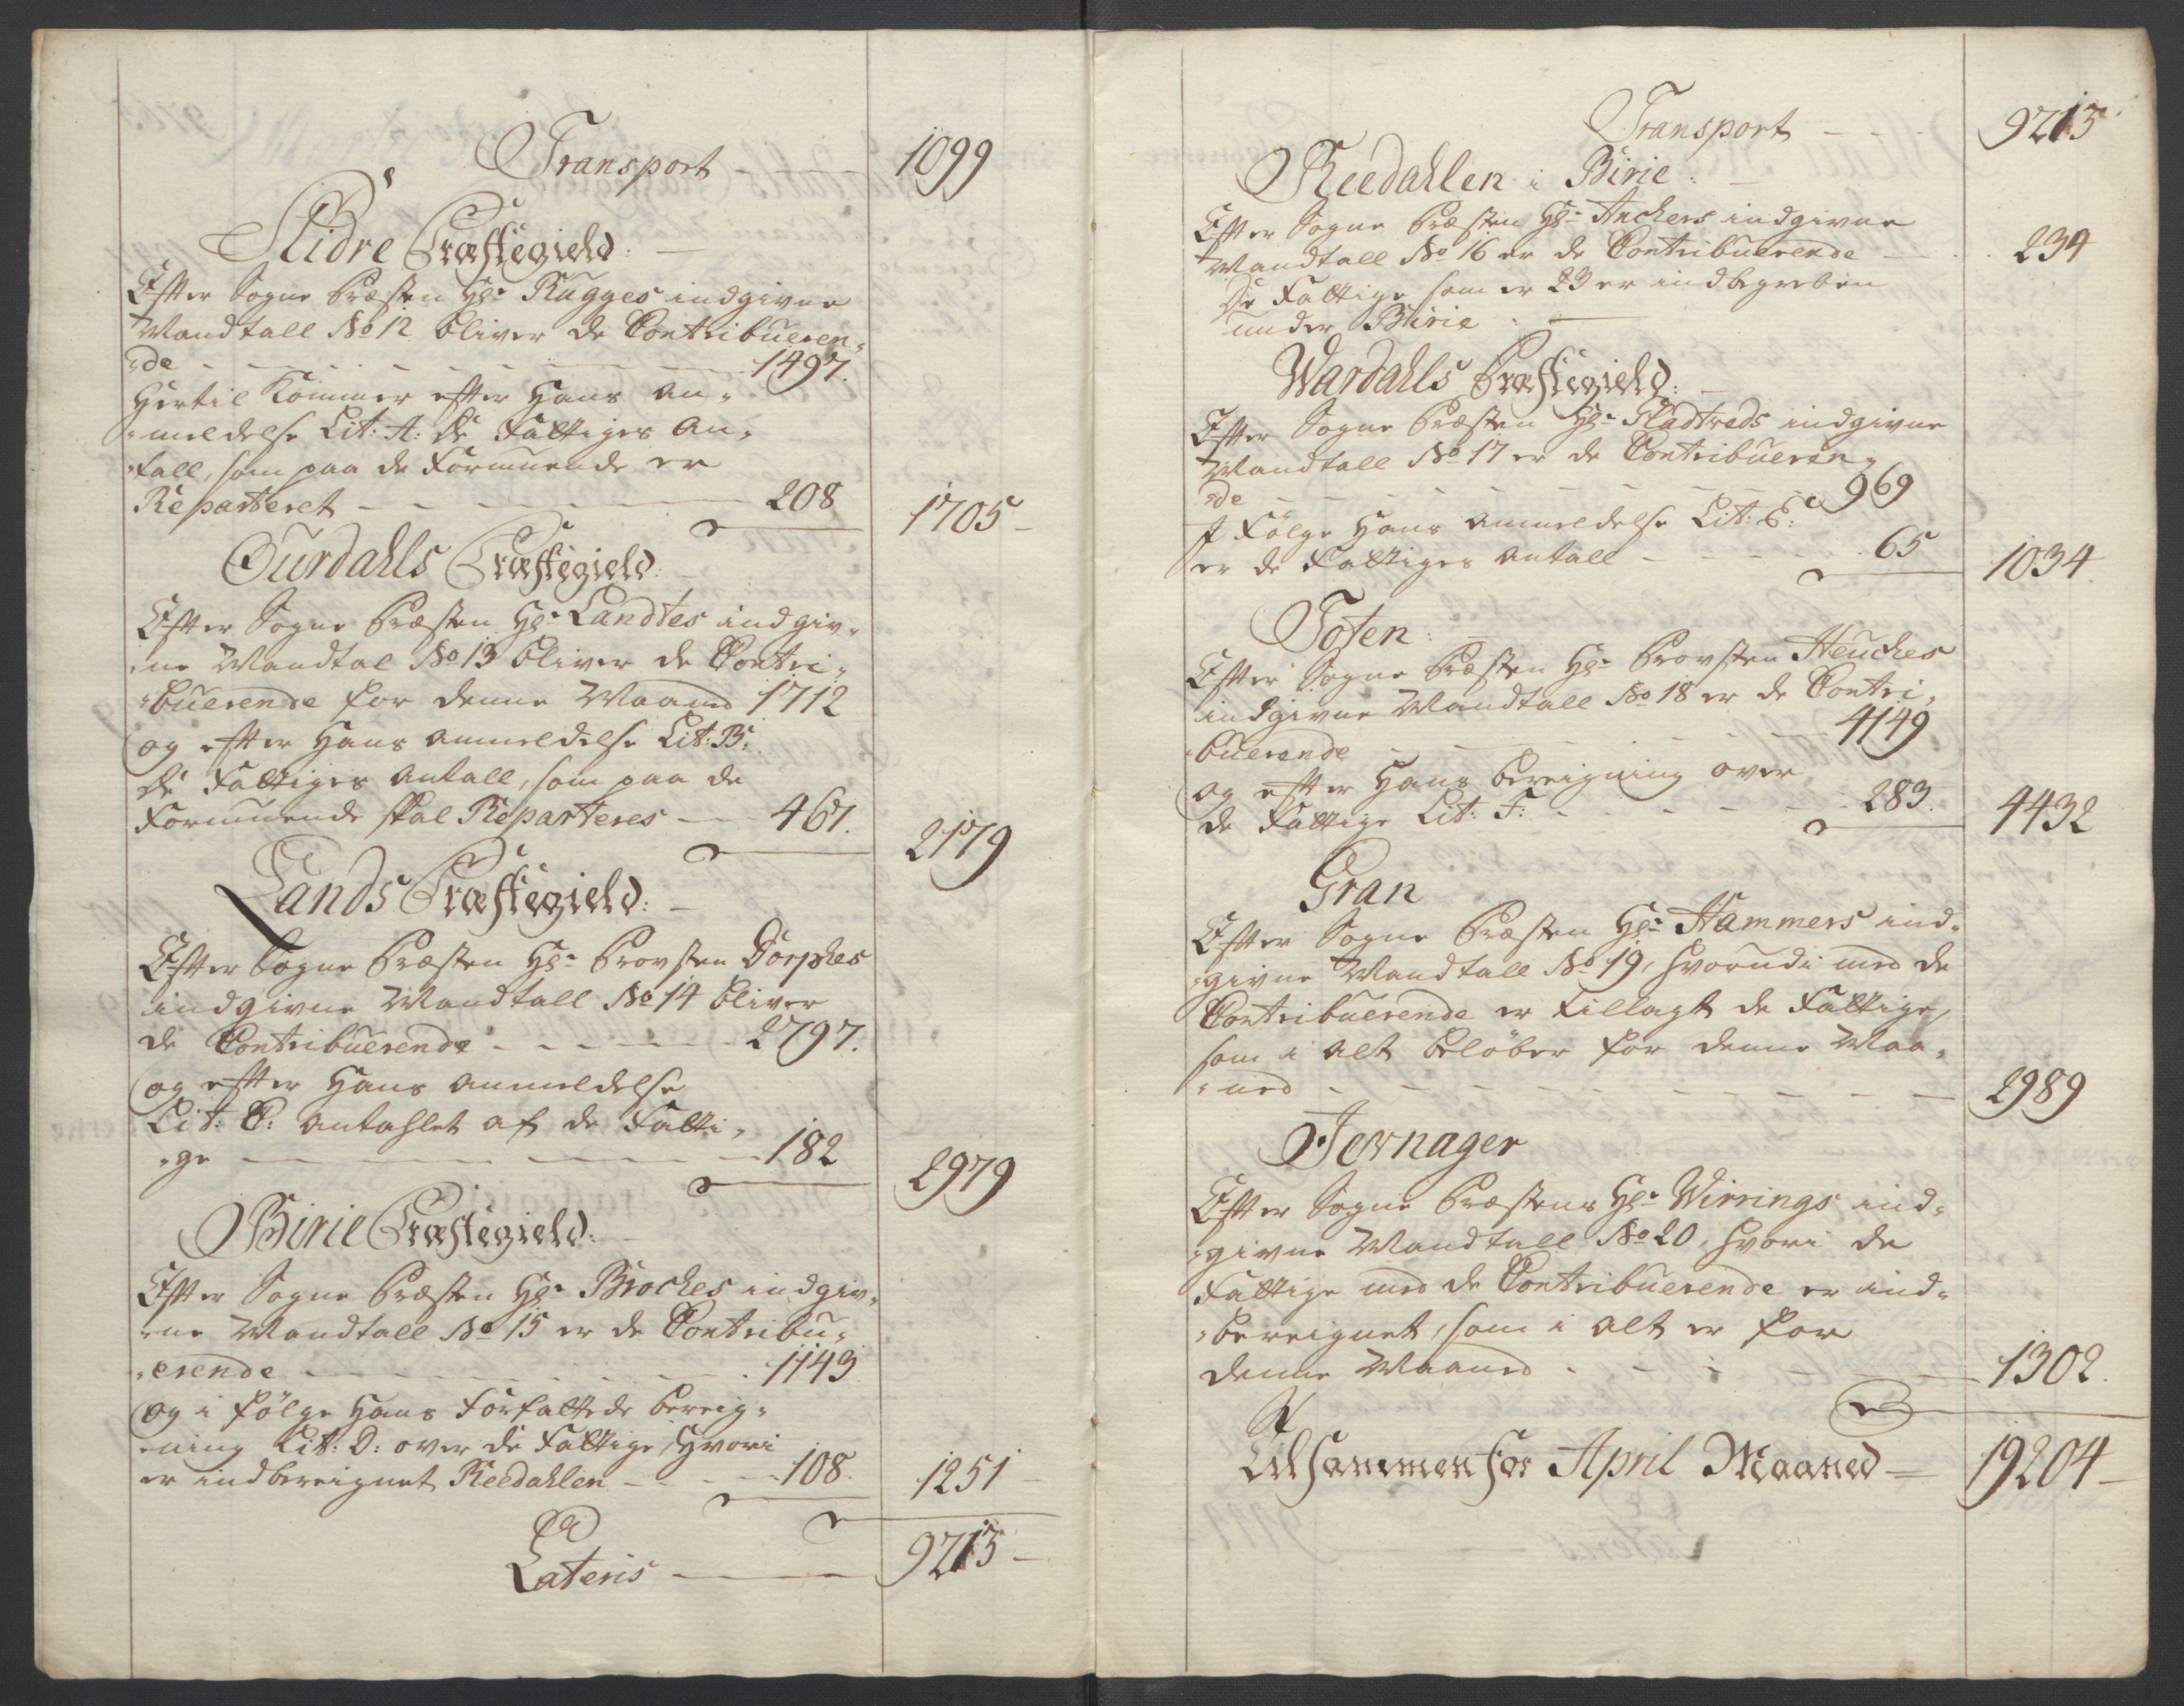 Transport - - - 1099
Slidre Præstegield: -
Efter Sogne Præsten Hr: Rugges indgivne
Mandtall No 12 bliver de Contribueren-
-de - - - - - - - - 1497.
Hertil kommer efter Hans An-
-meldelse Lit: A: De Fattiges An-
-tall, som paa de Formuende er
Reparteret - - - - - - 208 1705 -
Ourdahls Præstegield: -
Efter Sogne Præsten Hr: Landtes indgiv-
-ne Mandtal No 13 bliver de Contri-
-buerende for denne Maaned 1712
og efter Hans Anmeldelse Lit: B:
De Fattiges Antall, som paa de
Formuende skal Reparteres - - 467. 2179
Lands Præstegield: -
Efter Sogne Præsten Hr: Provsten Dorphes
indgivne Mandtall No 14 bliver
de Contribuerende - - - - - 2797.
og efter Hans Anmeldelse
Lit: C: Antahlet af de Fatti-
-ge - - - - - - 182 2979
Birie Præstegield: -
Efter Sogne Præsten Hr: Broches indgiv-
-ne Mandtall No 15 er de Contribu-
-erende - - - - - - - 1143.
og i følge Hans Forfattede bereig-
-ning Lit: D: over de Fattige, hvori
er indbereignet Reedahlen - - - 108. 1251
Lateris - - - 9213 -
Transport - - - 9213
Reedahlen i Birie: -
Efter Sogne Præsten Hr: Anchers indgivne
Mandtall No 16 er de Contribuerende - - 234
De Fattige som er 23 er indbegreben
under Birie - -
Wardahls Præstegield: -
Efter Sogne Præsten Hr: Fladtreds indgivne
Mandtall No 17 er de Contribueren-
-de - - - - - - - - - 969
I Følge Hans Anmeldelse Lit: E:
er de Fattiges Antall - - - - - 65 1034.
Toten:
Efter Sogne Præsten Hr: Provsten Heuches
indgivne Mandtall No 18 er de Contri-
-buerende - - - - - - - 4149
og efter Hans bereigning over
de Fattige Lit: F: - - - - - - 283. 4432
Gran
Efter Sogne Præsten Hr: Hammers ind-
-givne Mandtall No 19, hvorudi med de
Contribuerende er tillagt de Fattige,
som i alt beløber for denne Maa-
-ned - - - - - - - - - - 2989
Jevnager
Efter Sogne Præstens Hr: Wirrings ind-
-givne Mandtall No 20, hvori de
Fattige med de Contribuerende er ind-
-bereignet, som i alt er for
denne Maaned - - - - - - 1302.
Tilsammen for April Maaned = 19204 -